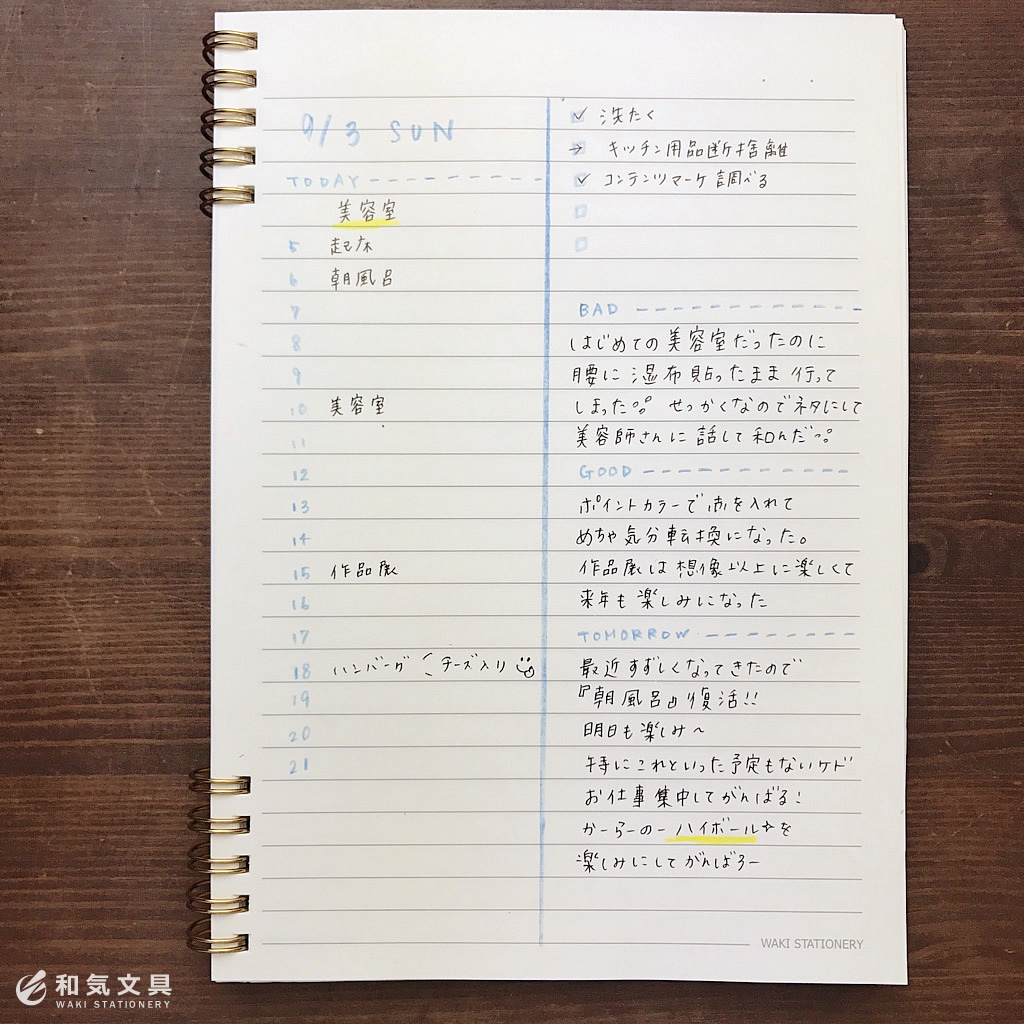 9/3 SUN
TODAY
美容室
5 起床
6 朝風呂
7
8
9
10 美容室
11
12
13
14
15 作品展
16
17
18 ハンバーグ チーズ入り
19
20
21
洗たく
キッチン用品断捨離
コンテンツマーケ調べる
BAD
はじめての美容室だったのに
腰に湿布貼ったまま行って
しまった。。せっかくなのでネタにして
美容師さんに話して和んだっ。
GOOD
ポイントカラーで赤を入れて
めちゃ気分転換になった。
作品展は想像以上に楽しくて
来年も楽しみになった
TOMORROW
最近すずしくなってきたので
『朝風呂』復活!!
明日も楽しみ〜
特にこれといった予定もないケド
お仕事集中してがんばる!
かーらーのーハイボール☆を
楽しみにしてがんばろー
WAKI STATIONERY
和気文具
WAKI STATIONERY